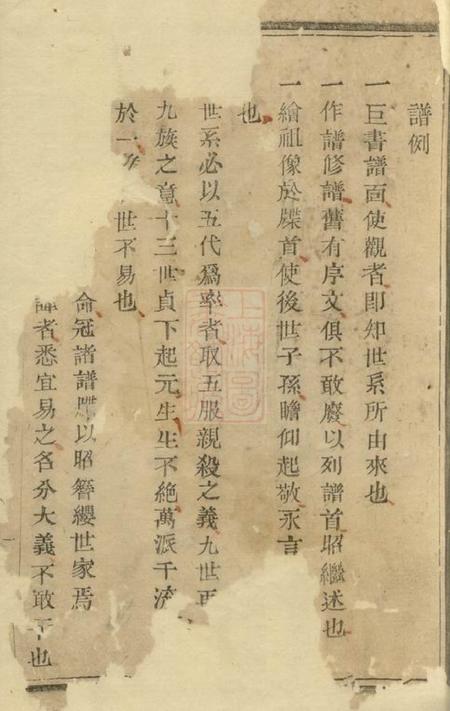 譜例
一巨書譜面使觀者即知世系所由來也
一作譜修譜舊有序文俱不敢廢以列譜首昭繼述也
一繪祖像於牒首使後世子孫瞻仰起敬永言
也
世系必以五代爲率者取五服親殺之義九世再
九族之意十三世貞下起元生生不絶萬派千流
於一 世不易也
命冠諸譜牒以昭簪纓世家焉
諱者悉宜易之名分大義不敢干也